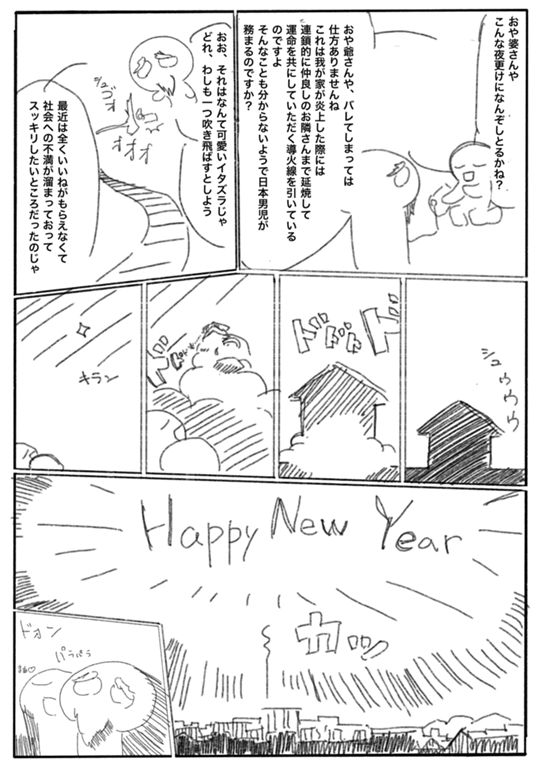 おや婆さんや
こんな夜更けになんぞしとるかね?
おや爺さんや、バレてしまっては
仕方ありませんね
これは我が家が炎上した際には
連鎖的に仲良しのお隣さんまで延焼して
運命を共にしていただく導火線を引いている
のですよ
そんなことも分からないようで日本男児が
務まるのですか?
おお、それはなんて可愛いイタズラじゃ
どれ、わしも一つ吹き飛ばすとしよう
シュゴォ
オオオ
最近は全くいいねがもらえなくて
社会への不満が溜まっておって
スッキリしたいところだったのじゃ
シュウウウ
ドドドド
ドドドド
キラン
Happy New Year
カッ
ドォン
パラパラ